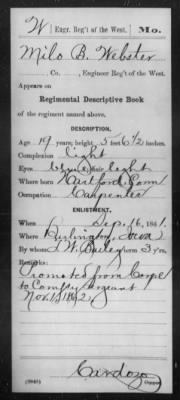 W | Engr. Reg't of the West. | Mo.
Milo B. Webster
, Co. , Engineer Reg't of the West.
Appears on
Regimental Descriptive Book
of the regiment named above.
DESCRIPTION.
Age 19 years; height 5 feet 6 1/2 inches.
Complexion Light
Eyes blue; hair light
Where born Hartford, Conn
Occupation Carpenter
ENLISTMENT.
When Sep. 16, 1861.
Where Burlington, Iowa
By whom J. W. Bailey term 3 y'rs.
Remarks:
Promoted from Corpl
to Comsy sergeant
Nov. 1, 1862.
Cardozo
Copyist.